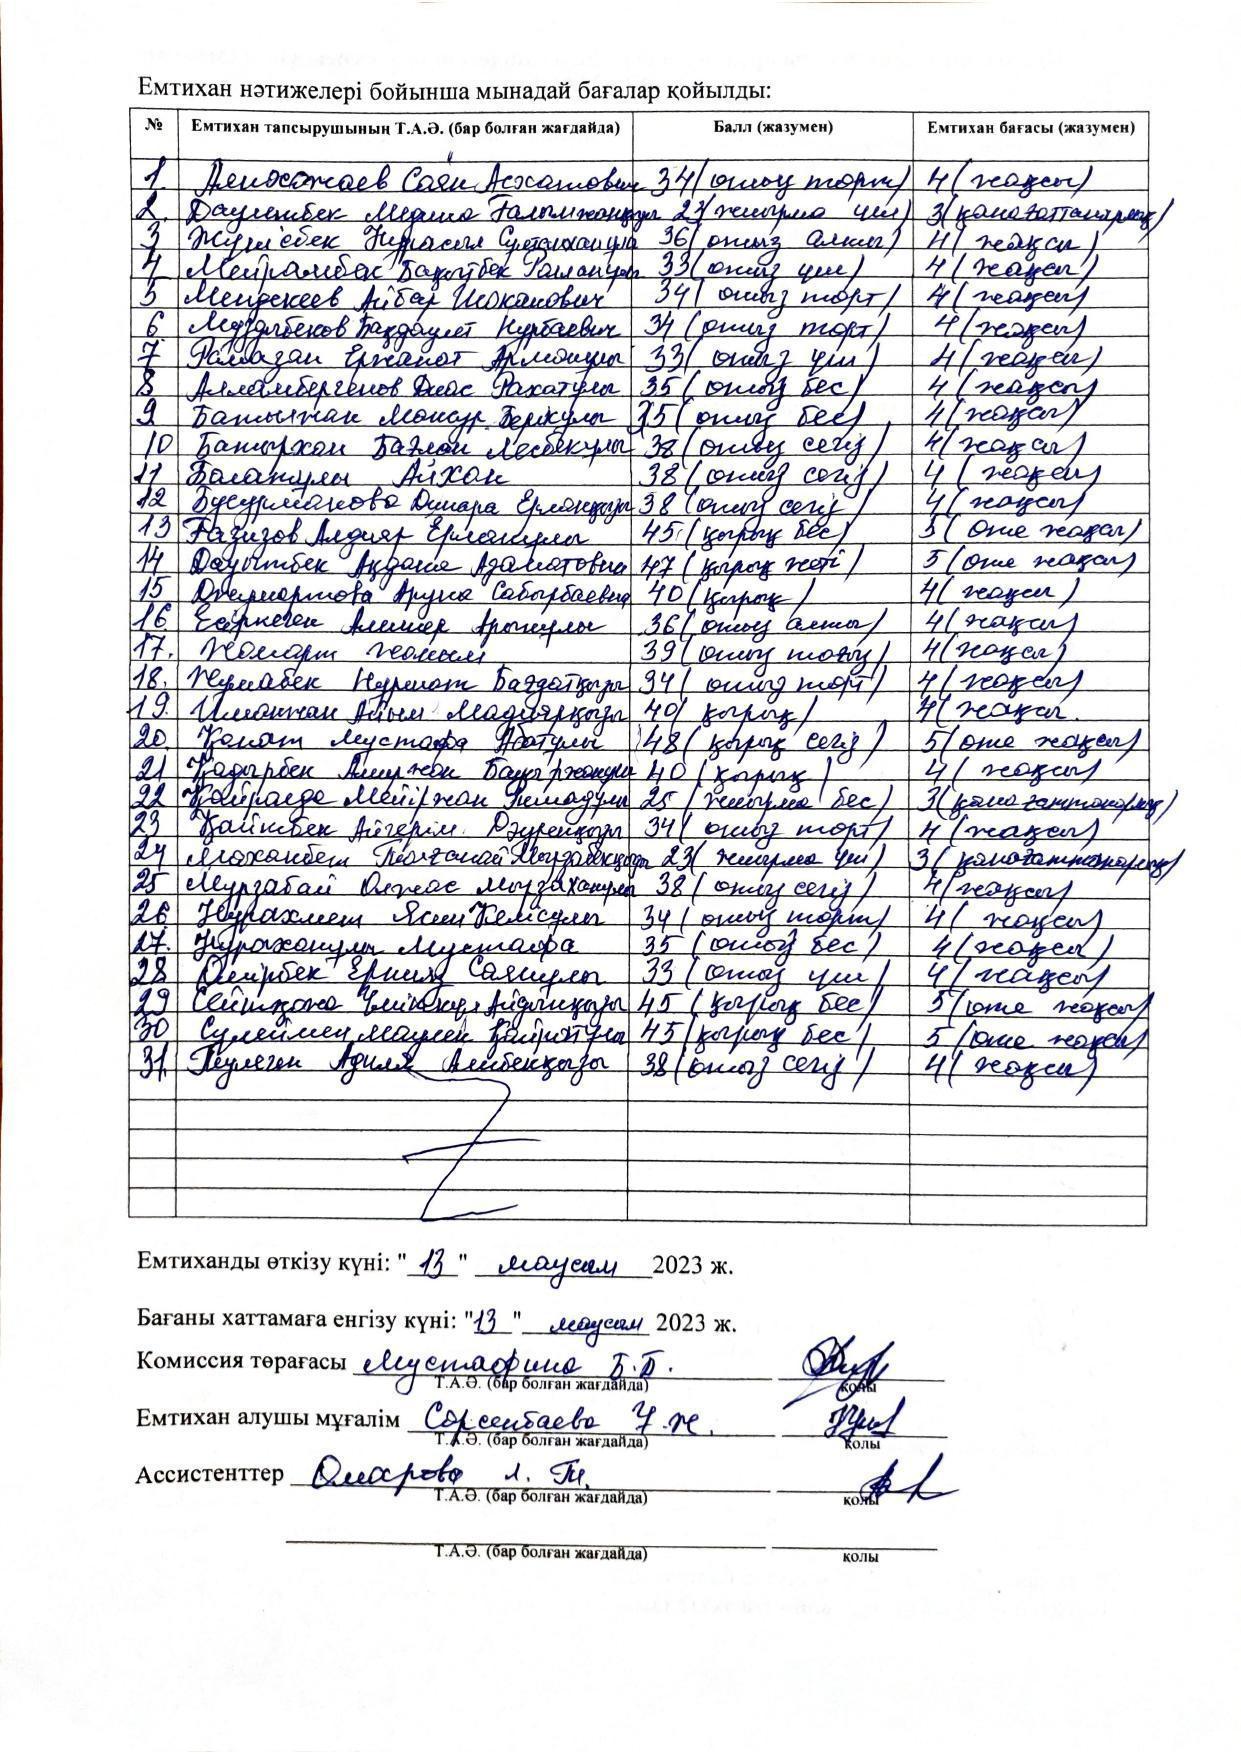 Емтихан нәтижелері бойынша мынадай бағалар қойылды:
№ Емтихан тапсырушының Т.А.Ә. (бар болған жағдайда) Балл (жазумен) Емтихан бағасы (жазумен)
1. Саян Асхатович 34 (отыз төрт) 4 (жақсы)
2. Даулетбек Медина Ғалымжанқызы 23 (жиырма үш) 3 (қанағаттанарлық)
3 Жүнісбек Нұрасыл Сұлтанханұлы 36 (отыз алты) 4 (жақсы)
4 Мейрамбек Бақытбек Русланұлы 33 (отыз үш) 4 (жақсы)
5 Мендекеев Айбар Шоканович 34 (отыз төрт) 4 (жақсы)
6 Бақдаулет Нурбаевич 34 (отыз төрт) 4 (жақсы)
7 Рамазан Ержанат Арманұлы 33 (отыз үш) 4 (жақсы)
8 Алламбергенов Диас Рахатулы 35 (отыз бес) 4 (жақсы)
9 Мансур Берікұлы 35 (отыз бес) 4 (жақсы)
10 Батырхан Бағлан 38 (отыз сегіз) 4 (жақсы)
11 Болатұлы Айхан 38 (отыз сегіз) 4 (жақсы)
12 Бусурманова Динара Ерланқызы 38 (отыз сегіз) 4 (жақсы)
13 Ғазизов Алдияр Ерланұлы 45 (қырық бес) 5 (өте жақсы)
14 Дауытбек Ақдана Азаматовна 47 (қырық жеті) 5 (өте жақсы)
15 Аруна Сабырбаевна 40 (қырық) 4 (жақсы)
16. Есіркеген Алишер 36 (отыз алты) 4 (жақсы)
17. Жомарт 39 (отыз тоғыз) 4 (жақсы)
18. Жумабек Нуршат Бағдатқызы 34 (отыз төрт) 4 (жақсы)
19. Иманжан Айым Мадиярқызы 40 (қырық) 4 (жақсы.
20. Қанат Мустафа Абатұлы 48 (қырық сегіз) 5 (өте жақсы)
21 Қадырбек Амиржан Бауыржанұлы 40 (қырық) 4 (жақсы)
22 Мейіржан 25 (жиырма бес) 3 (қанағаттанарлық)
23 Қайтбек Айгерім Дәуренқызы 34 (отыз төрт) 4 (жақсы)
24 Маханбет Толғанай Мырзабекқызы 23 (жиырма үш) 3 (қанағаттанарлық)
25 Мурзабай Олжас Мырзаханұлы 38 (отыз сегіз) 4 (жақсы)
26 Нурахмет Ясин Келісұлы 34 (отыз төрт) 4 (жақсы)
27. Нұраханұлы Мустафа 35 (отыз бес) 4 (жақсы)
28 Өмірбек Саянұлы 33 (отыз үш) 4 (жақсы)
29 Сейтқожа Айдынқызы 45 (қырық бес) 5 (өте жақсы)
30 Сулеймен Қайратұлы 45 (қырық бес) 5 (өте жақсы)
31. Төлеген Адиля Алибекқызы 38 (отыз сегіз) 4 (жақсы)
Емтиханды өткізу күні: "13" маусым 2023 ж.
Бағаны хаттамаға енгізу күні: "13" маусым 2023 ж.
Комиссия төрағасы Мустафина Б.Б.
Т.А.Ә. (бар болған жағдайда) қолы
Емтихан алушы мұғалім Сәрсенбаева Ұ.Ж.
Т.А.Ә. (бар болған жағдайда) қолы
Ассистенттер Омарова
Т.А.Ә. (бар болған жағдайда) қолы
Т.А.Ә. (бар болған жағдайда) қолы